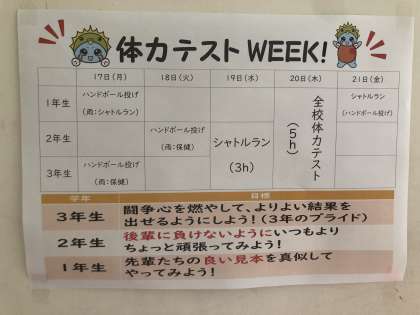 体力テストWEEK!
17日(月) 18日(火) 19日(水) 20日(木) 21日(金)
1年生 ハンドボール投げ シャトルラン
(雨:シャトルラン) (ハンドボール投げ)
2年生 ハンドボール投げ
(雨:保健)
シャトルラン
(3h)
全校体力テスト
(5h)
3年生 ハンドボール投げ
(雨:保健)
学年 目標
3年生 闘争心を燃やして、よりよい結果を
出せるようにしよう!(3年のプライド)
2年生 後輩に負けないようにいつもより
ちょっと頑張ってみよう!
1年生 先輩たちの良い見本を真似して
やってみよう!